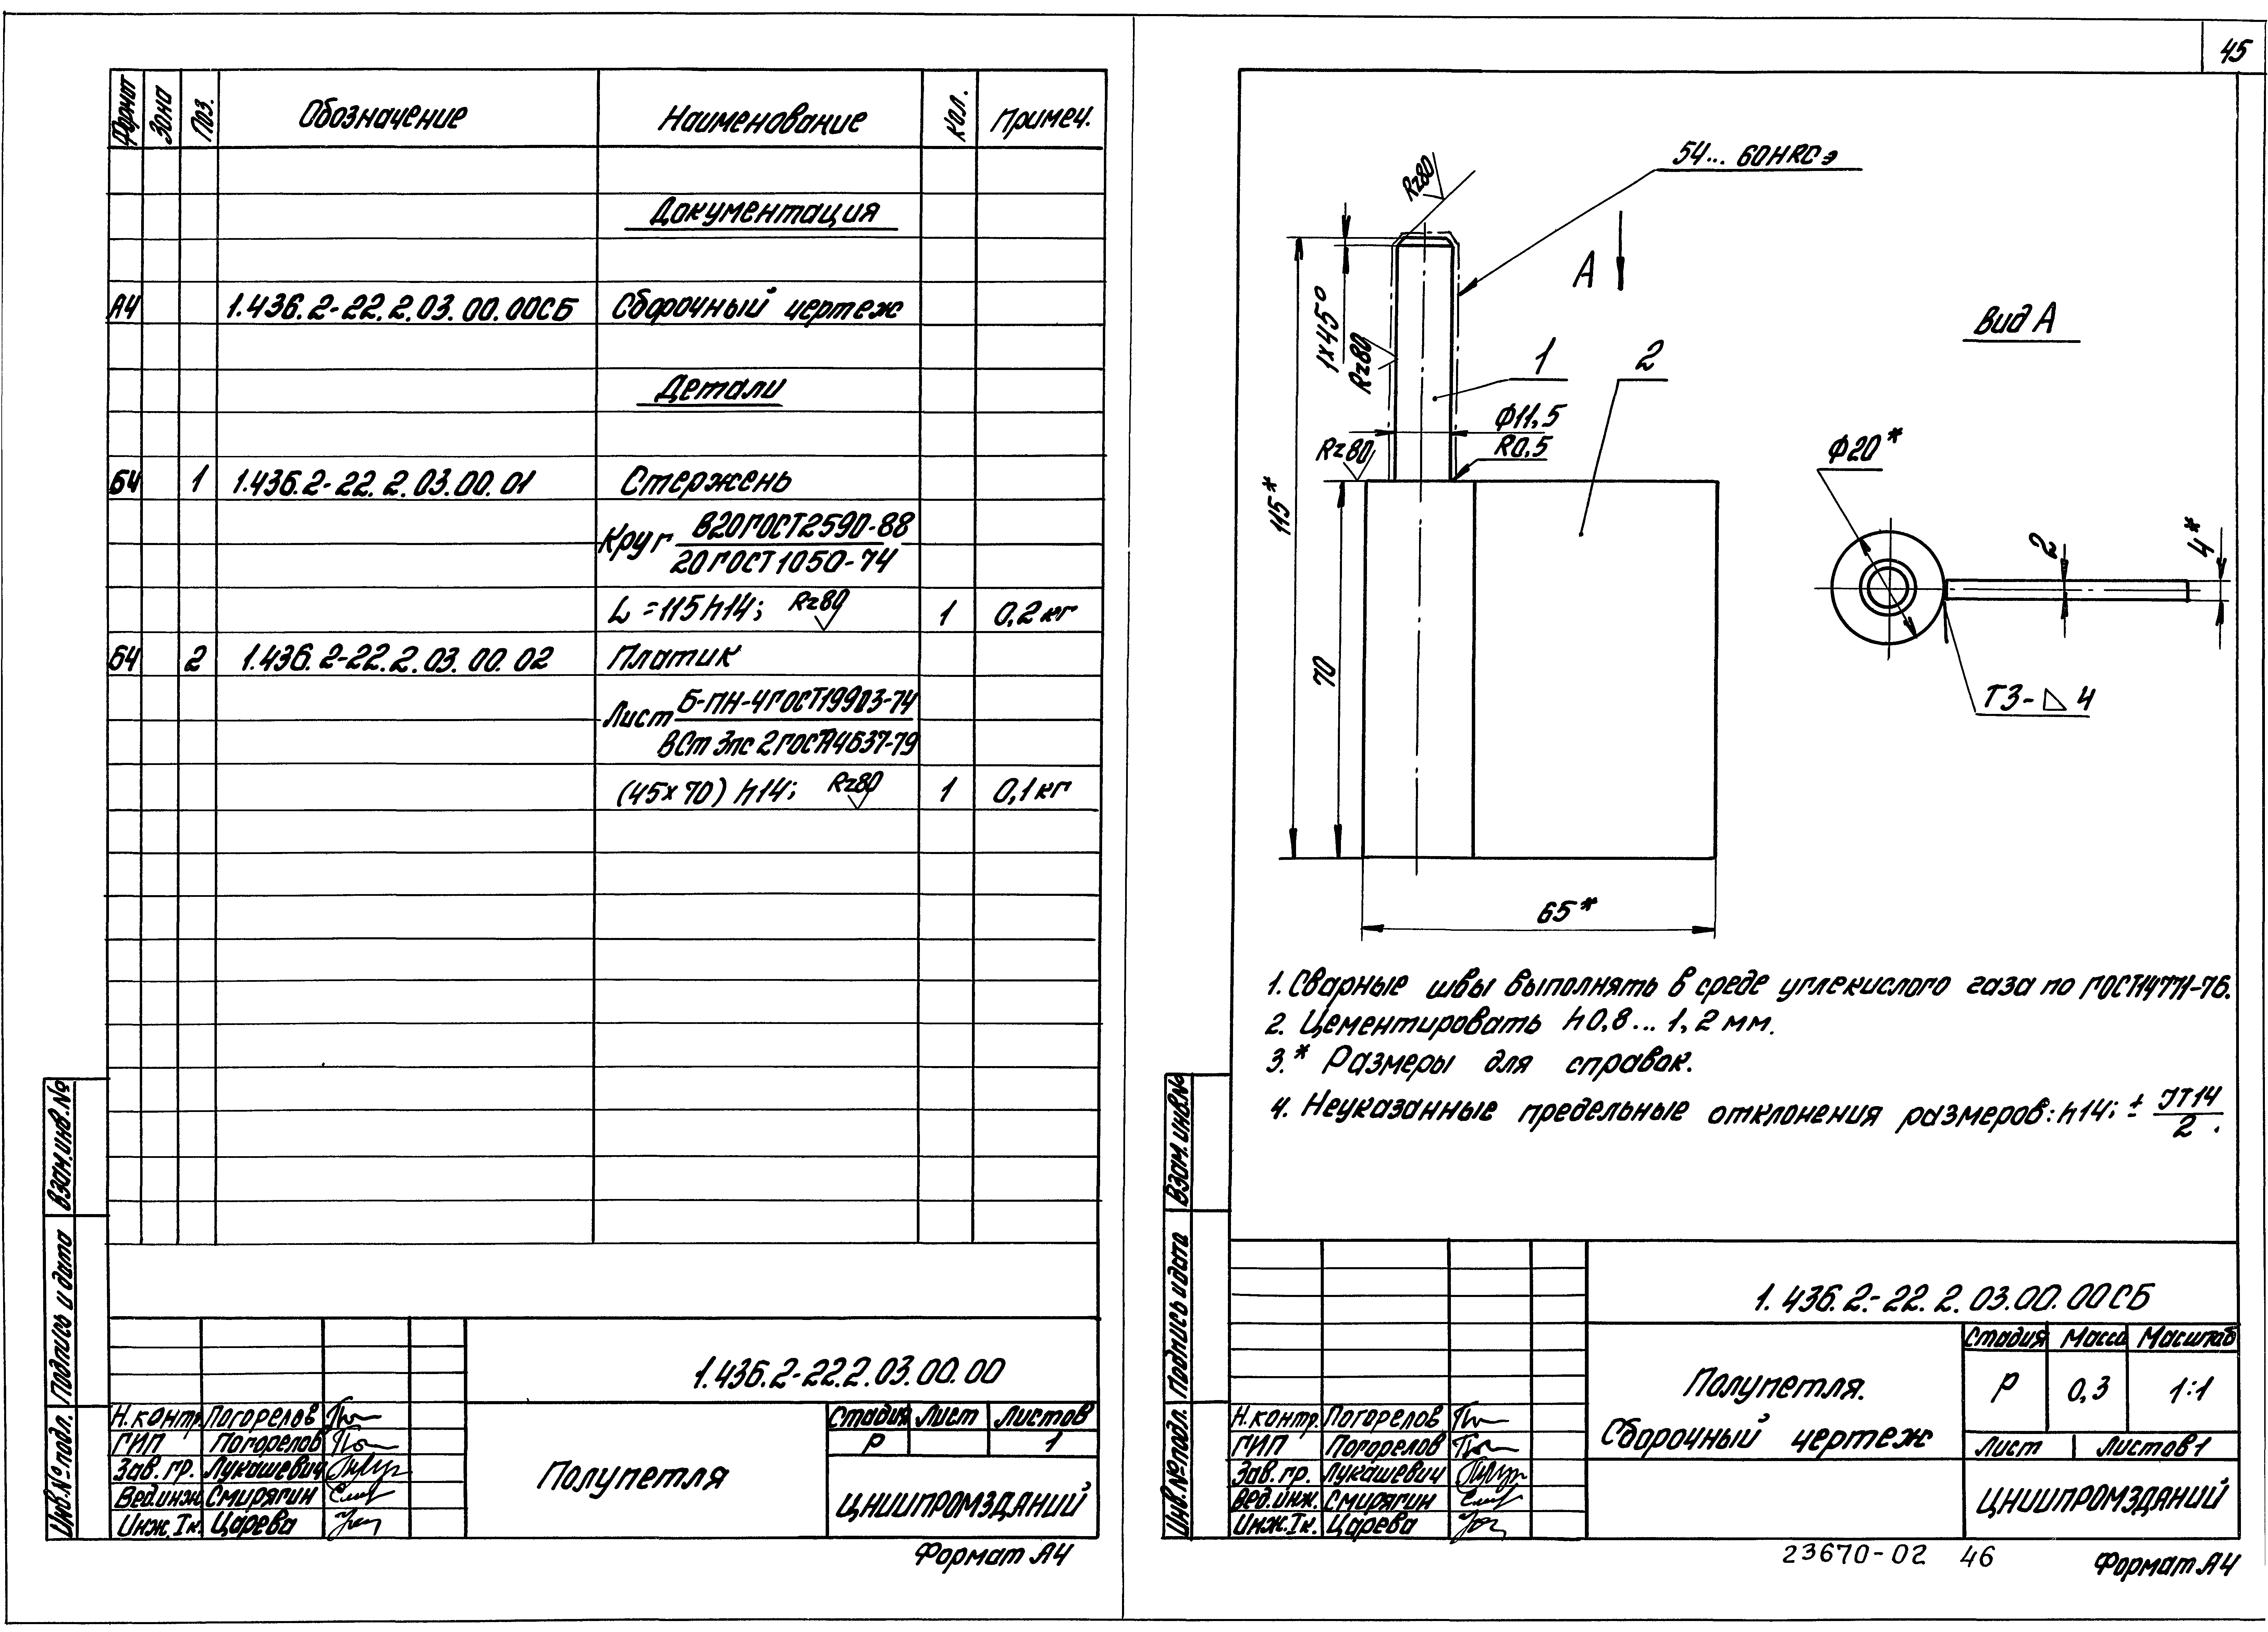 45
Формат Зона Поз. Обозначение Наименование Кол. Примеч.
Документация
А4 1.436.2-22.2.03.00.00СБ Сборочный чертеж
Детали
Б4 1 1.436.2-22.2.03.00.01 Стержень
Круг В20 ГОСТ 2590-88
20 ГОСТ 1050-74
L=115 h14; Rz80 1 0,2 кг
Б4 2 1.436.2-22.2.03.00.02 Платик
Лист Б-ПН-4 ГОСТ 19903-74
ВСт 3пс 2 ГОСТ 14637-79
(45х70) h14; Rz80 1 0,1 кг
Взам. инв. №
Подпись и дата
Инв. № подл.
1.436.2-22.2.03.00.00
Н. контр. Погорелов
ГИП Погорелов
Зав. гр. Лукашевич
Вед. инж. Смирягин
Инж. Iк. Царева
Полупетля
Стадия Лист Листов
Р 1
ЦНИИПРОМЗДАНИЙ
Формат А4
54... 60 HRCэ
Rz80
А
1х45°
Rz80
1
2
Ф11,5
R0,5
Rz80
115*
70
65*
Вид А
Ф20*
2
4*
Т3-◺ 4
1. Сварные швы выполнять в среде углекислого газа по ГОСТ 14771-76.
2. Цементировать h 0,8... 1,2 мм.
3.* Размеры для справок.
4. Неуказанные предельные отклонения размеров: h14; ± IT14
2.
Взам. инв. №
Подпись и дата
Инв. № подл.
1.436.2-22.2.03.00.00СБ
Н. контр. Погорелов
ГИП Погорелов
Зав. гр. Лукашевич
Вед. инж. Смирягин
Инж. Iк. Царева
Полупетля.
Сборочный чертеж
Стадия Масса Масштаб
Р 0,3 1:1
Лист Листов 1
ЦНИИПРОМЗДАНИЙ
23670-02 46
Формат А4